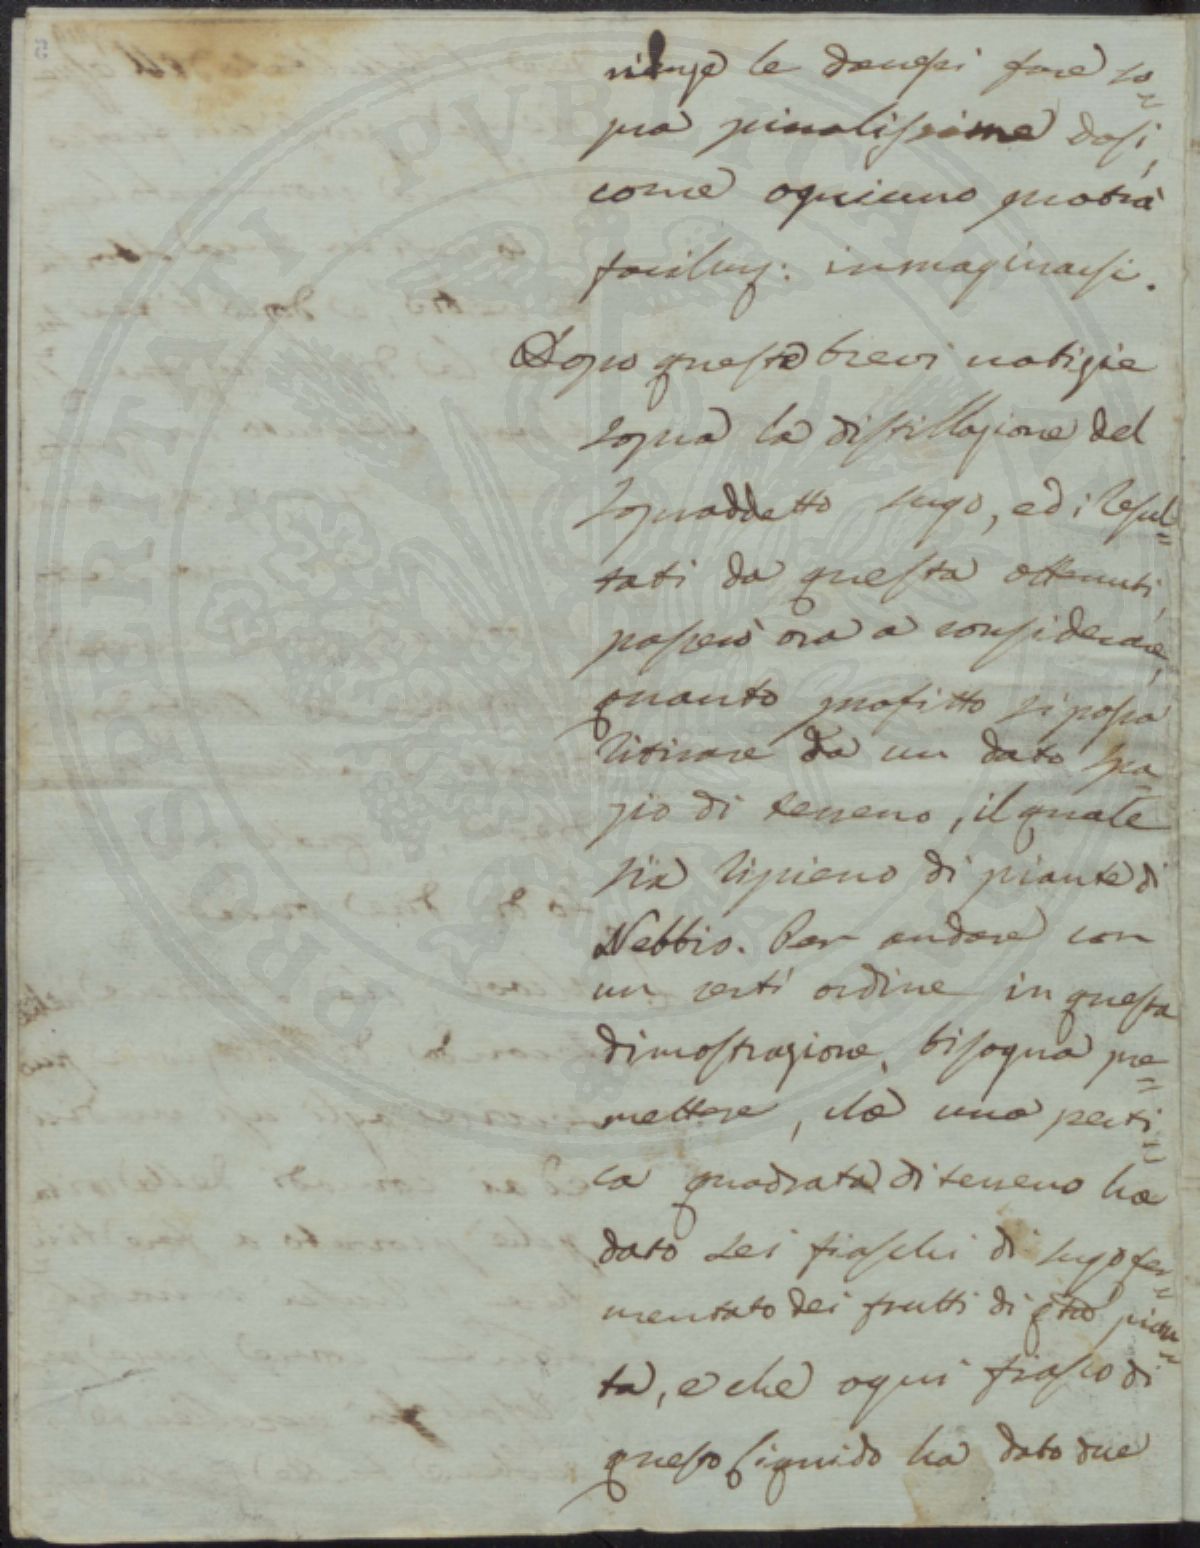 rienze le dovessi fare so=
pra piccolissime dosi,
come ogniuno potrà
facilmẽ: immaginarsi.
Dopo queste brevi notizie
sopra la distillazione del
sopraddetto sugo, ed i resul=
tati da questa ottenuti,
passerò ora a considerare,
quanto profitto si possa
ritirare da un dato spa=
zio di terreno, il quale
sia ripieno di piante di
Nebbio. Per andare con
un certi ordine in questa
dimostrazione, bisogna pre=
mettere, che una perti=
ca quadrata di terreno ha
dato sei fiaschi di sugo fer=
mentato dei frutti di qta pian=
ta, e che ogni fiasco di
questo liquido ha dato due
PROSPERITATI PUBLICAE
5